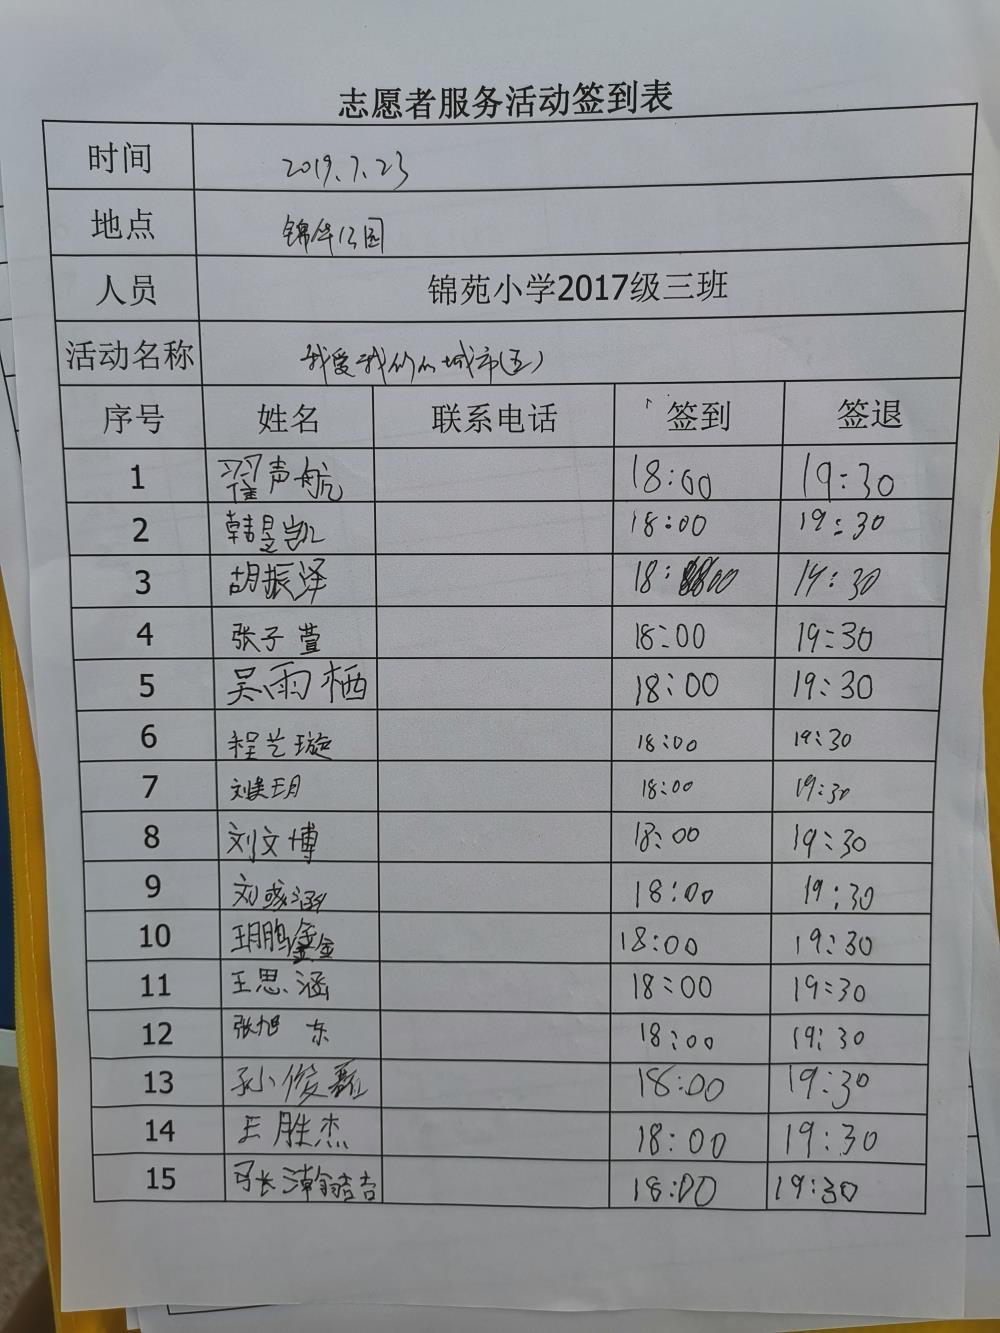 志愿者服务活动签到表
时间 2019.7.23
地点 锦华公园
人员 锦苑小学2017级三班
活动名称 我爱我们的城市(五)
序号 姓名 联系电话 签到 签退
1 翟声航 18:00 19:30
2 韩昱凯 18:00 19:30
3 胡振泽 18:00 19:30
4 张子萱 18:00 19:30
5 吴雨栖 18:00 19:30
6 程艺璇 18:00 19:30
7 18:00 19:30
8 刘文博 18:00 19:30
9 刘彧涵 18:00 19:30
10 18:00 19:30
11 王思涵 18:00 19:30
12 张旭东 18:00 19:30
13 孙俊磊 18:00 19:30
14 王胜杰 18:00 19:30
15 18:00 19:30